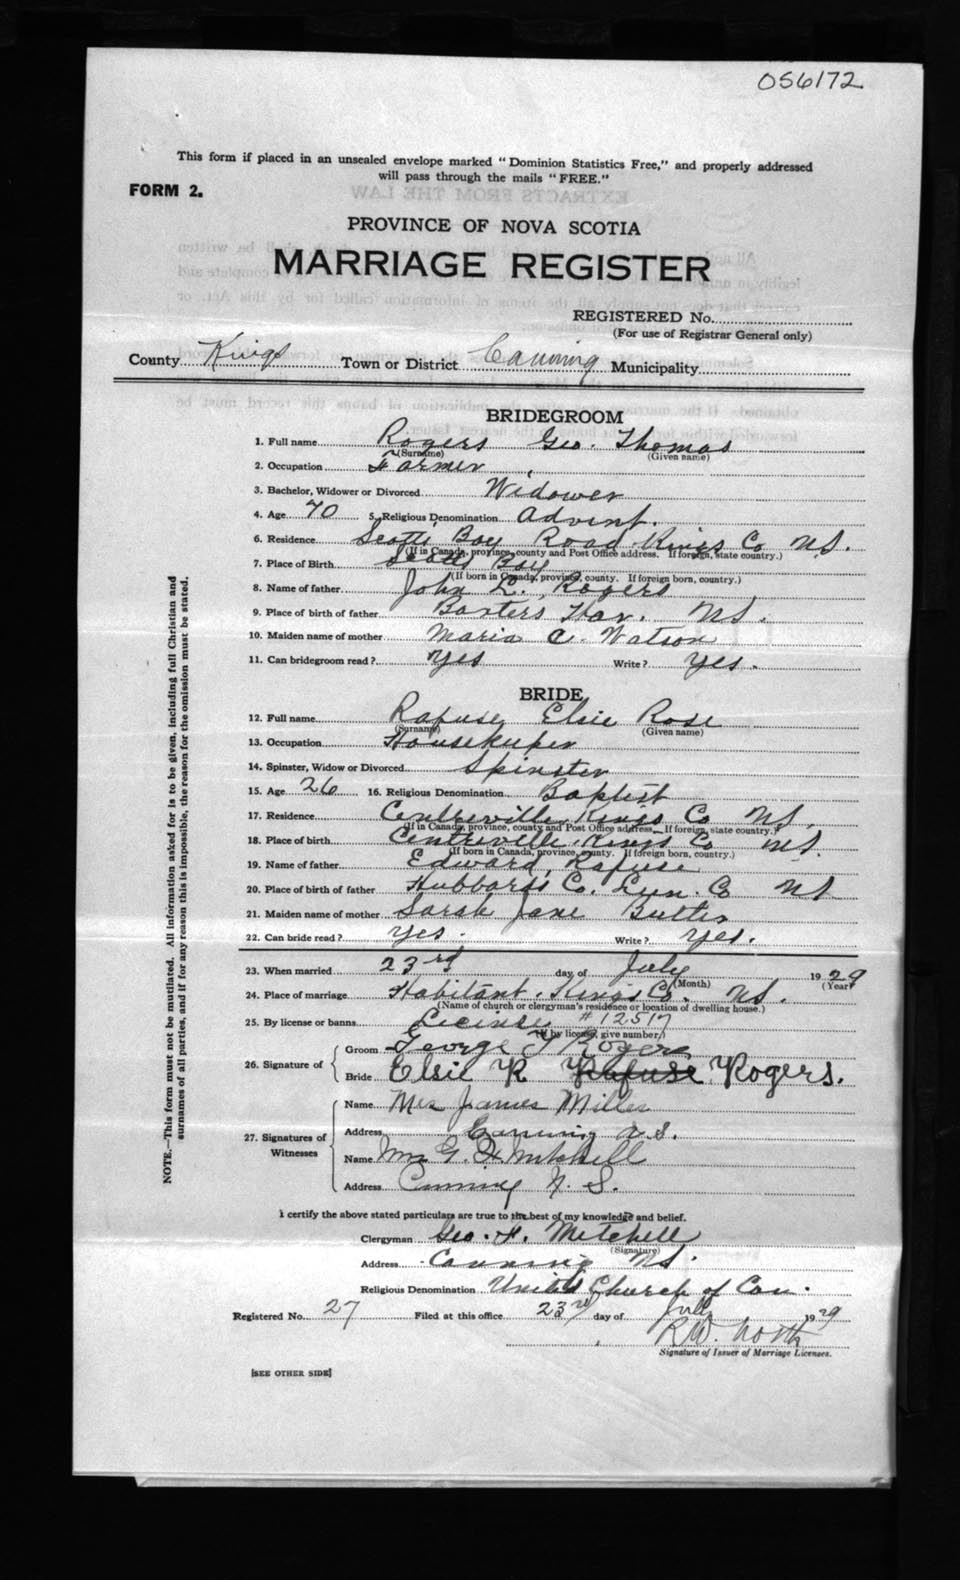 056172
This form if placed in an unsealed envelope marked "Dominion Statistics Free," and properly addressed
will pass through the mails "FREE."
FORM 2.
PROVINCE OF NOVA SCOTIA
MARRIAGE REGISTER
REGISTERED No.
(For use of Registrar General only)
County Kings Town or District Canning Municipality
BRIDEGROOM
1. Full name Rogers Geo. Thomas
(Surname) (Given name)
2. Occupation Farmer
3. Bachelor, Widower or Divorced Widower
4. Age 70 5. Religious Denomination Advent.
6. Residence Scotts Bay Road Kings Co NS.
(If in Canada, province, county and Post Office address. If foreign, state country.)
7. Place of Birth Scotts Bay
(If born in Canada, province, county. If foreign born, country.)
8. Name of father John L. Rogers
9. Place of birth of father Baxters Har. NS.
10. Maiden name of mother Maria C. Watson
11. Can bridegroom read? Yes Write? Yes.
BRIDE
12. Full name Rafuse Elsie Rose
(Surname) (Given name)
13. Occupation Housekeeper
14. Spinster, Widow or Divorced Spinster
15. Age 26 16. Religious Denomination Baptist
17. Residence Centreville Kings Co NS.
(If in Canada, province, county and Post Office address. If foreign, state country.)
18. Place of birth Centreville Kings Co NS.
(If born in Canada, province, county. If foreign born, country.)
19. Name of father Edward Rafuse
20. Place of birth of father Hubbards Co. Lun. Co NS
21. Maiden name of mother Sarah Jane Butler
22. Can bride read? Yes. Write? Yes.
23. When married 23rd day of July 1929
(Month) (Year)
24. Place of marriage Habitant. Kings Co. NS.
(Name of church or clergyman's residence or location of dwelling house.)
25. By license or banns License #12517
(If by license, give number)
26. Signature of
Groom George T Rogers
Bride Elsie R Rafuse Rogers.
27. Signatures of Witnesses
Name Mrs James Miller
Address Canning N.S.
Name Mrs G. F. Mitchell
Address Canning N. S.
I certify the above stated particulars are true to the best of my knowledge and belief.
Clergyman Geo. F. Mitchell
(Signature)
Address Canning NS.
Religious Denomination United Church of Can.
Registered No. 27 Filed at this office 23rd day of July 1929
R.W. North
Signature of Issuer of Marriage Licenses.
[SEE OTHER SIDE]
NOTE.—This form must not be mutilated. All information asked for is to be given, including full Christian and
surnames of all parties, and if for any reason this is impossible, the reason for the omission must be stated.